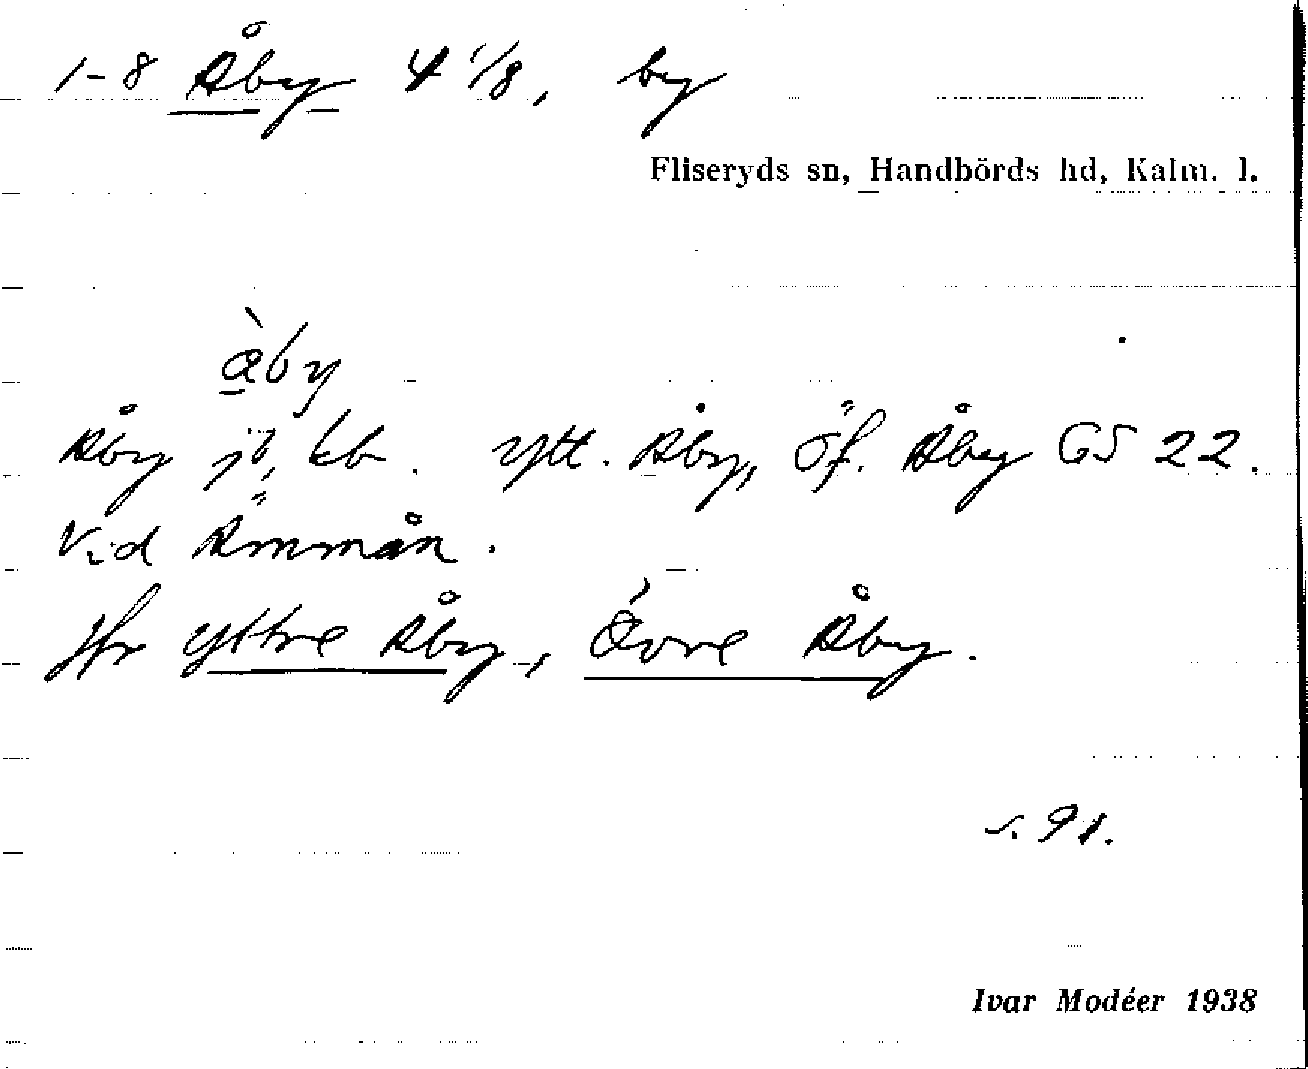 1-8 Åby 4 1/8, by
Fliseryds sn, Handbörds hd, Kalm. l.
àby
Åby jb, kb. Ytt. Åby, Öf. Åby GS 22.
Vid Ämmån.
Jfr Yttre Åby, Övre Åby.
s. 91.
Ivar Modéer 1938